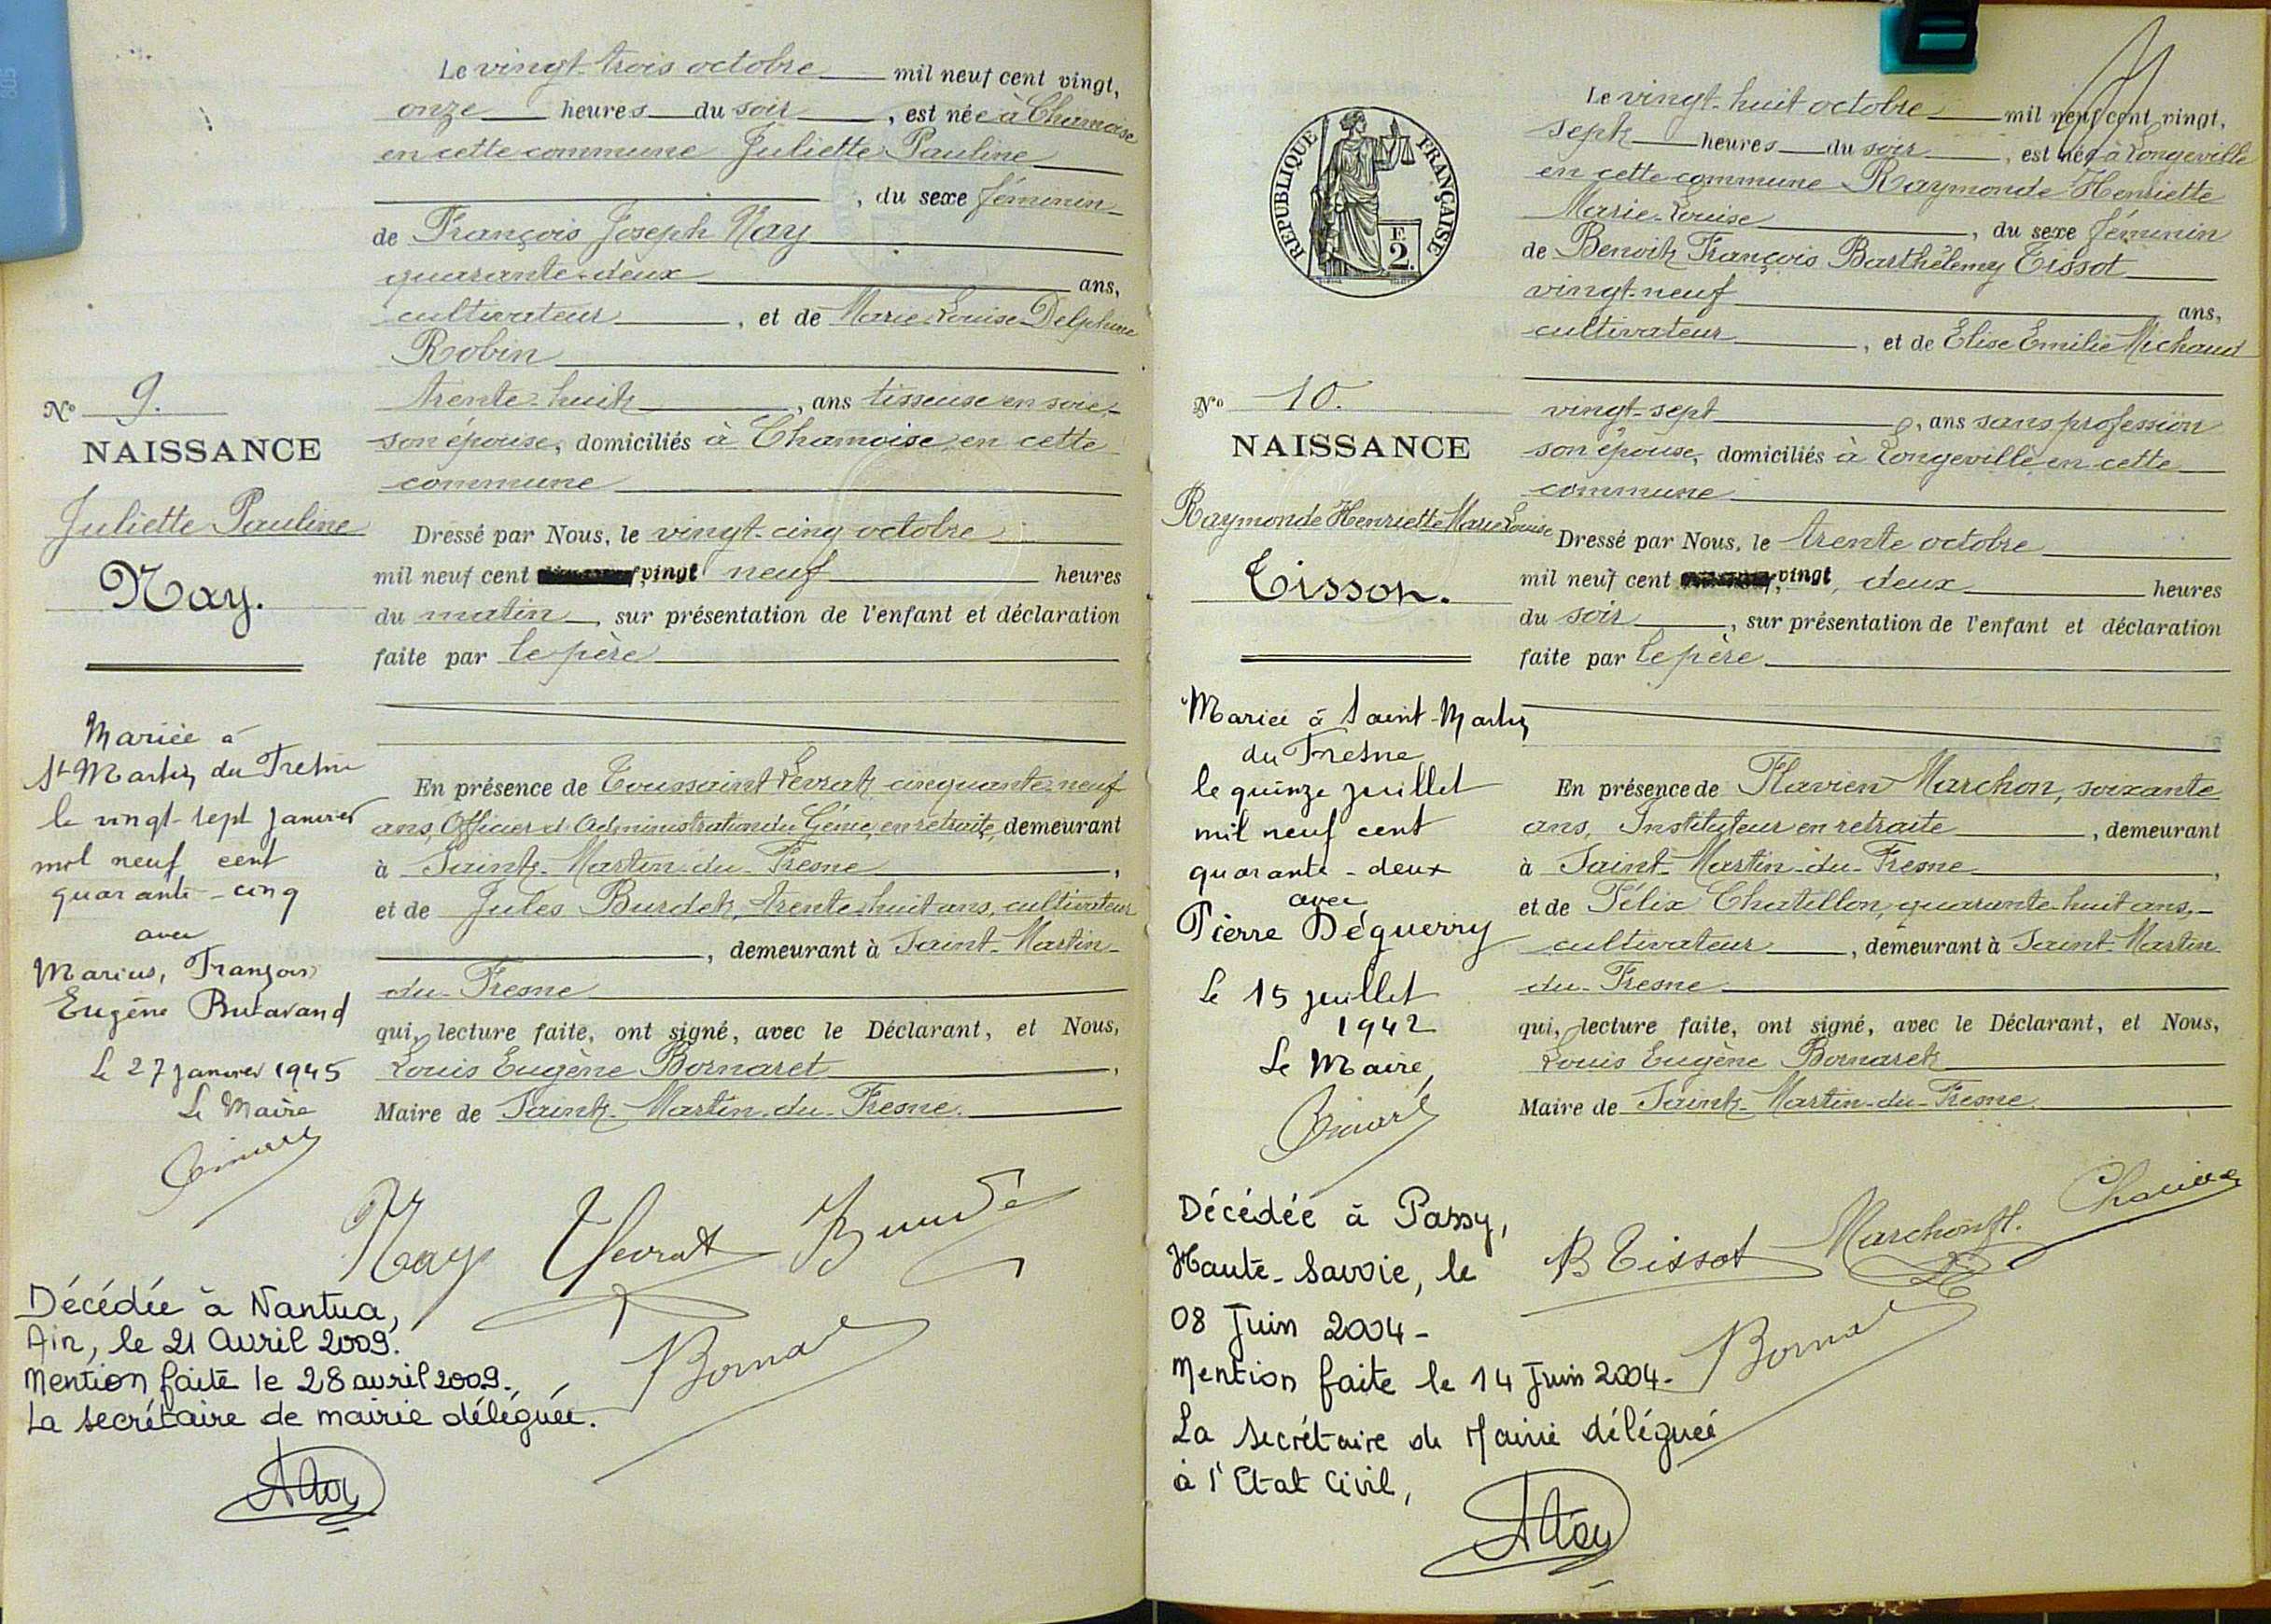 Le vingt-trois octobre mil neuf cent vingt,
onze heures du soir, est née à Chamoise
en cette commune Juliette Pauline
, du sexe féminin
de François Joseph Nay
quarante-deux ans,
cultivateur, et de Marie Louise Delphine
Robin
trente-huit, ans tisseuse en soie,
son épouse, domiciliés à Chamoise en cette
commune
Dressé par Nous, le vingt-cinq octobre
mil neuf cent vingt neuf heures
du matin, sur présentation de l'enfant et déclaration
faite par le père
En présence de Toussaint Levrat cinquante-neuf
ans, Officier d'Administration du Génie, en retraite, demeurant
à Saint-Martin-du-Fresne,
et de Jules Burdet, trente-huit ans, cultivateur
, demeurant à Saint-Martin-
du-Fresne
qui, lecture faite, ont signé, avec le Déclarant, et Nous,
Louis Eugène Bornaret,
Maire de Saint-Martin-du-Fresne.
Nº 9.
NAISSANCE
Juliette Pauline
Nay.
Mariée à
St Martin du Fresne
le vingt-sept janvier
mil neuf cent
quarante-cinq
avec
Marius, François
Eugène Butavand
Le 27 janvier 1945
Le Maire
Nay
Décédée à Nantua,
Ain, le 21 avril 2009.
Mention faite le 28 avril 2009.
La secrétaire de mairie déléguée.
REPUBLIQUE FRANÇAISE
F.
2.
Le vingt-huit octobre mil neuf cent vingt,
sept heures du soir, est née à Longeville
en cette commune Raymonde Henriette
Marie-Louise, du sexe féminin
de Benoit François Barthélemy Tissot
vingt-neuf ans,
cultivateur, et de Elise Emilie Michaud
vingt-sept, ans sans profession
son épouse, domiciliés à Longeville en cette
commune
Dressé par Nous, le trente octobre
mil neuf cent vingt, deux heures
du soir, sur présentation de l'enfant et déclaration
faite par le père
En présence de Flavien Marchon, soixante
ans, Instituteur en retraite, demeurant
à Saint-Martin-du-Fresne,
et de Félix Chatillon, quarante-huit ans,
cultivateur, demeurant à Saint-Martin
du-Fresne
qui, lecture faite, ont signé, avec le Déclarant, et Nous,
Louis Eugène Bornaret
Maire de Saint-Martin-du-Fresne.
Nº 10.
NAISSANCE
Raymonde Henriette Marie Louise
Tissot.
Mariée à Saint-Martin
du Fresne
le quinze juillet
mil neuf cent
quarante-deux
avec
Pierre Déguerry
Le 15 juillet
1942
Le Maire,
B Tissot Marchon fl.
Décédée à Passy,
Haute-Savoie, le
08 Juin 2004-
Mention faite le 14 Juin 2004-
La secrétaire de Mairie déléguée
à l'Etat Civil,